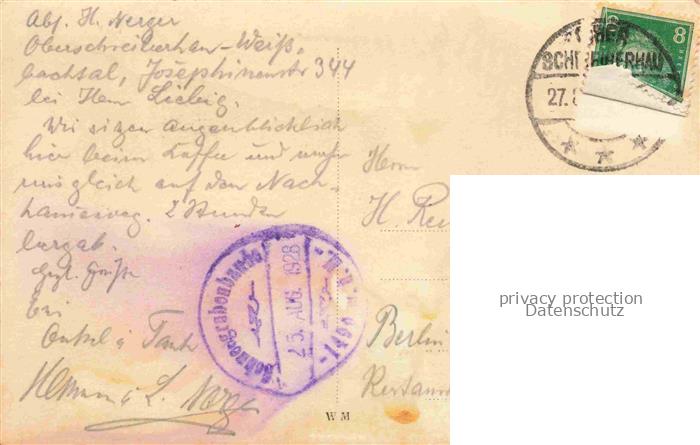 Abs. H. Nerger
Oberschreiberhau-Weiß-
bachtal, Josephinenstr 344
bei Herrn Liebig.
Wir sitzen augenblicklich
hier beim Kaffee und
gleich auf den Nach-
hauseweg. 2 Stunden
bergab.
Herzl. Grüße
Onkel u Tante
Hermann u L. Nerger
Schneegrubenbaude
25. AUG. 1928
OBER
SCHREIBERHAU
27.
8
Herrn
H.
Berlin
WM
privacy protection
Datenschutz